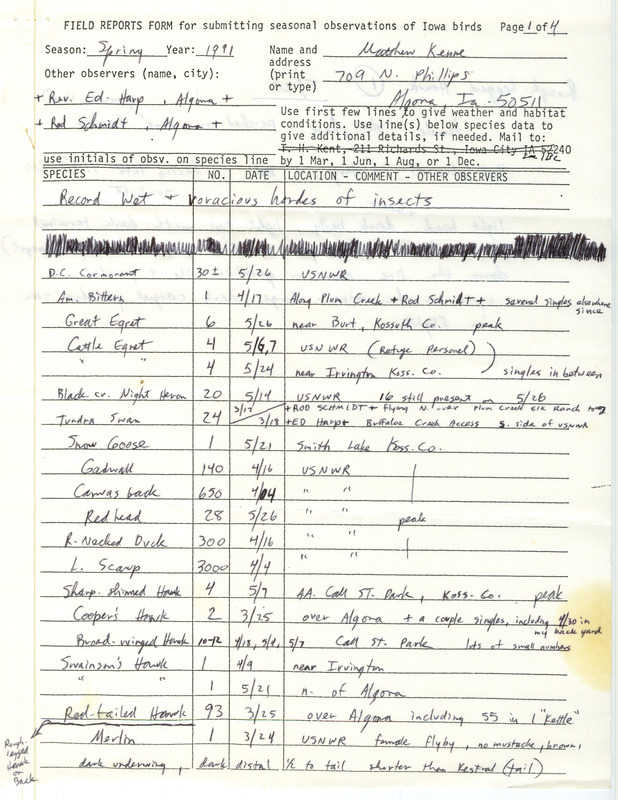 FIELD REPORTS FORM for submitting seasonal observations of Iowa birds Page 1 of 4
Season: Spring Year: 1991 Name and address (print or type) Matthew Kenne
709 N. Phillips
Algona, Ia. 50511
Other observers (name, city):
+ Rev. Ed. Harp, Algona +
+ Rod Schmidt, Algona +
Use first few lines to give weather and habitat
conditions. Use line(s) below species data to
give additional details, if needed. Mail to:
T. H. Kent, 211 Richards St., Iowa City IA 52240
use initials of obsv. on species line by 1 Mar, 1 Jun, 1 Aug, or 1 Dec.
SPECIES NO. DATE LOCATION - COMMENT - OTHER OBSERVERS
Record Wet + voracious hordes of insects
D.C. Cormorant 30± 5/26 USNWR
Am. Bittern 1 4/17 Along Plum Creek + Rod Schmidt + several singles elsewhere since
Great Egret 6 5/26 near Burt, Kossuth Co. peak
Cattle Egret 4 5/6,7 USNWR (Refuge Personel)
" " 4 5/24 near Irvington Koss. Co. singles in between
Black cr. Night Heron 20 5/14 USNWR 16 still present on 5/26
Tundra Swan 24 3/17 + ROD SCHMIDT + Flying N. over Plum Creek Elk Ranch
3/18 + ED Harp + Buffaloe Creek Access S. side of USNWR
Snow Goose 1 5/21 Smith Lake Koss. Co.
Gadwall 140 4/16 USNWR
Canvas back 650 4/04 " "
Redhead 28 5/26 " " peak
R. Necked Duck 300 4/16 " "
L. Scaup 3000 4/4
Sharp-shinned Hawk 4 5/7 AA. Call ST. Park, Koss. Co. peak
Cooper's Hawk 2 3/25 over Algona + a couple singles, including 4/30 in my back yard
Broad-winged Hawk 10-12 4/18, 5/4, 5/7 Call St. Park lots of small numbers
Swainson's Hawk 1 4/9 near Irvington
" " 1 5/21 n. of Algona
Red-tailed Hawk 93 3/25 over Algona including 55 in 1 "Kettle"
Rough-legged Hawk on Back
Merlin 1 3/24 USNWR female flyby, no mustache, brown,
dark underwing, dark distal ½ to tail shorter than Kestral (tail)